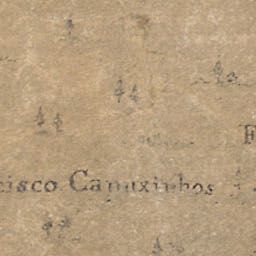 F
cisco Capuxinhos